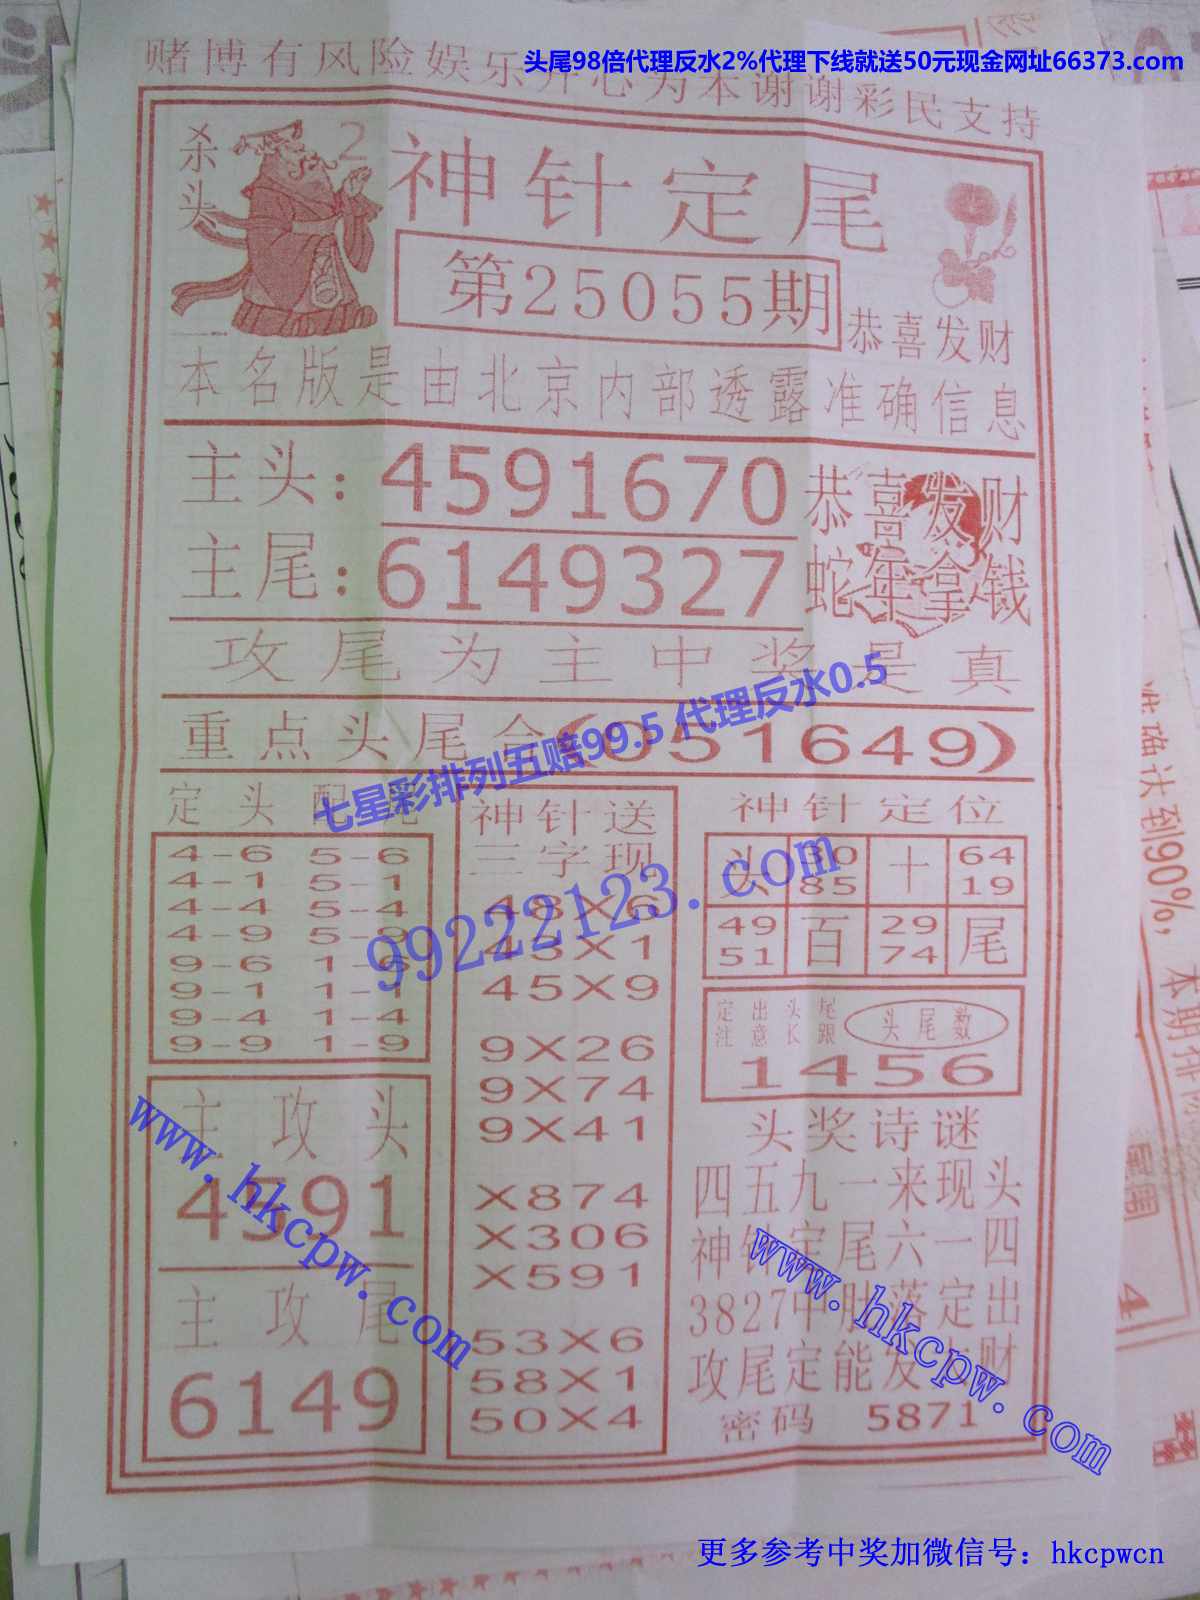 头尾98倍代理反水2%代理下线就送50元现金网址66373.com
赌博有风险娱乐开心为本谢谢彩民支持
杀头 2
神针定尾
第25055期
恭喜发财
本名版是由北京内部透露准确信息
主头：4591670
恭喜发财
主尾：6149327
蛇年拿钱
攻尾为主中奖是真
重点头尾合(051649)
七星彩排列五赔99.5 代理反水0.5
99222123.com
定头配尾
4-6 5-6
4-1 5-1
4-4 5-4
4-9 5-9
9-6 1-6
9-1 1-1
9-4 1-4
9-9 1-9
主攻头
4591
主攻尾
6149
神针送
三字现
48X6
43X1
45X9
9X26
9X74
9X41
X874
X306
X591
53X6
58X1
50X4
神针定位
头 30 十 64
85 19
49 百 29 尾
51 74
定出头尾
注意长跟
头尾数
1456
头奖诗谜
四五九一来现头
神针定尾六一四
3827中肚落定出
攻尾定能发大财
密码 5871
www.hkcpw.com
www.hkcpw.com
准确决到90%，本期排
4
更多参考中奖加微信号：hkcpwcn